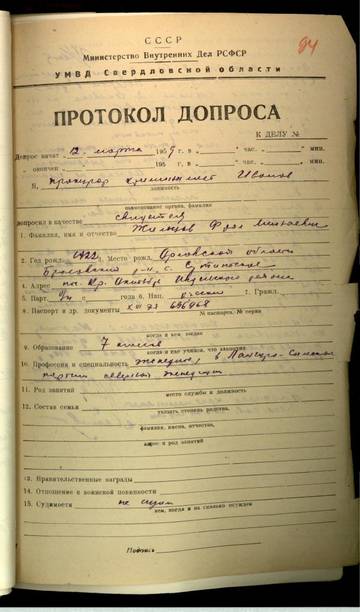 94
СССР
Министерство Внутренних Дел РСФСР
УМВД Свердловской области
ПРОТОКОЛ ДОПРОСА
К ДЕЛУ №
Допрос начат 12 марта 1959 г. в „ час. мин.
„ окончен 195 г. в „ час. мин.
Я, прокурор криминалист Иванов
должность
наименование органа, фамилия
допросил в качестве свидетеля
1. Фамилия, имя и отчество
2. Год рожд. 1922 Место рожд. Орловской области
4. Адрес пос.
5. Парт. г. года б. Нац. русский 7. Гражд.
8. Паспорт и др. документы
№ паспорта, № серия
когда и кем, когда
9. Образование 7 классов
когда и как учился, что окончил
10. Профессия и специальность
партии северной экспедиции
11. Род занятий
место службы и должность
12. Состав семьи
указать степень родства,
фамилия, имена, отчества,
адрес и род занятий
13. Правительственные награды
14. Отношение к воинской повинности
15. Судимости не судим
кем, когда и на сколько осужден
Подпись